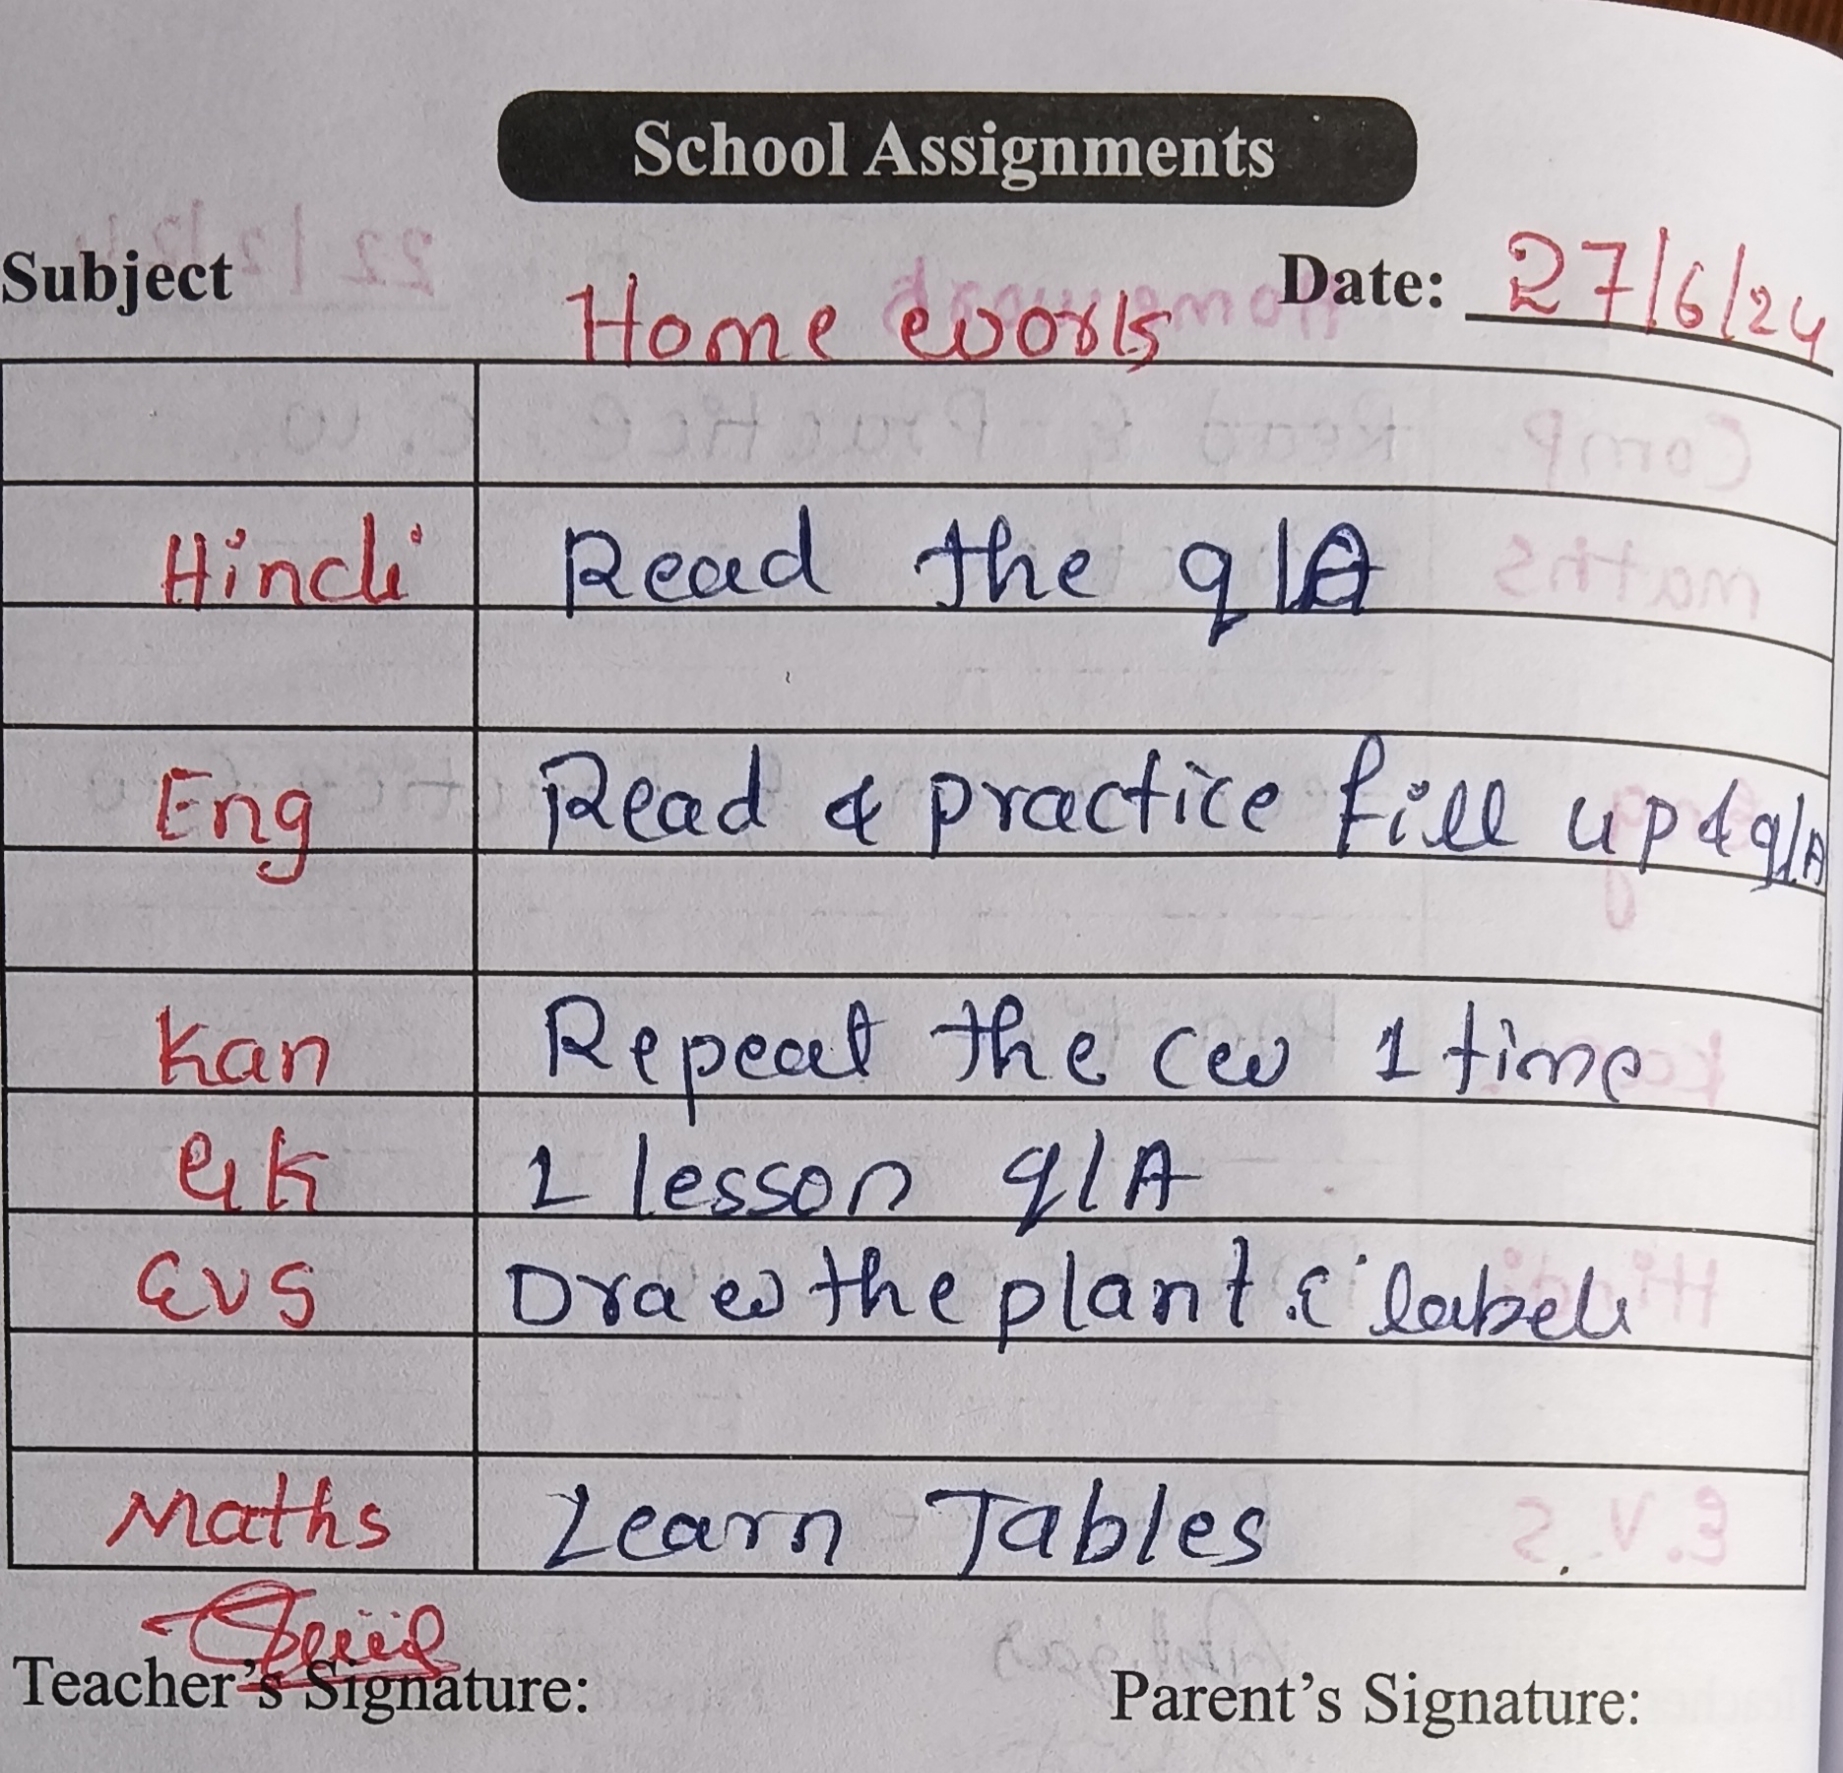 School Assignments
Subject Date: 27/6/24
Home work
Hindi Read the q/A
Eng Read & practice fill up & q/A
Kan Repeat the cw 1 time
GK 1 lesson q/A
EVS Draw the plant & label
Maths Learn Tables
Teacher's Signature: Parent's Signature: